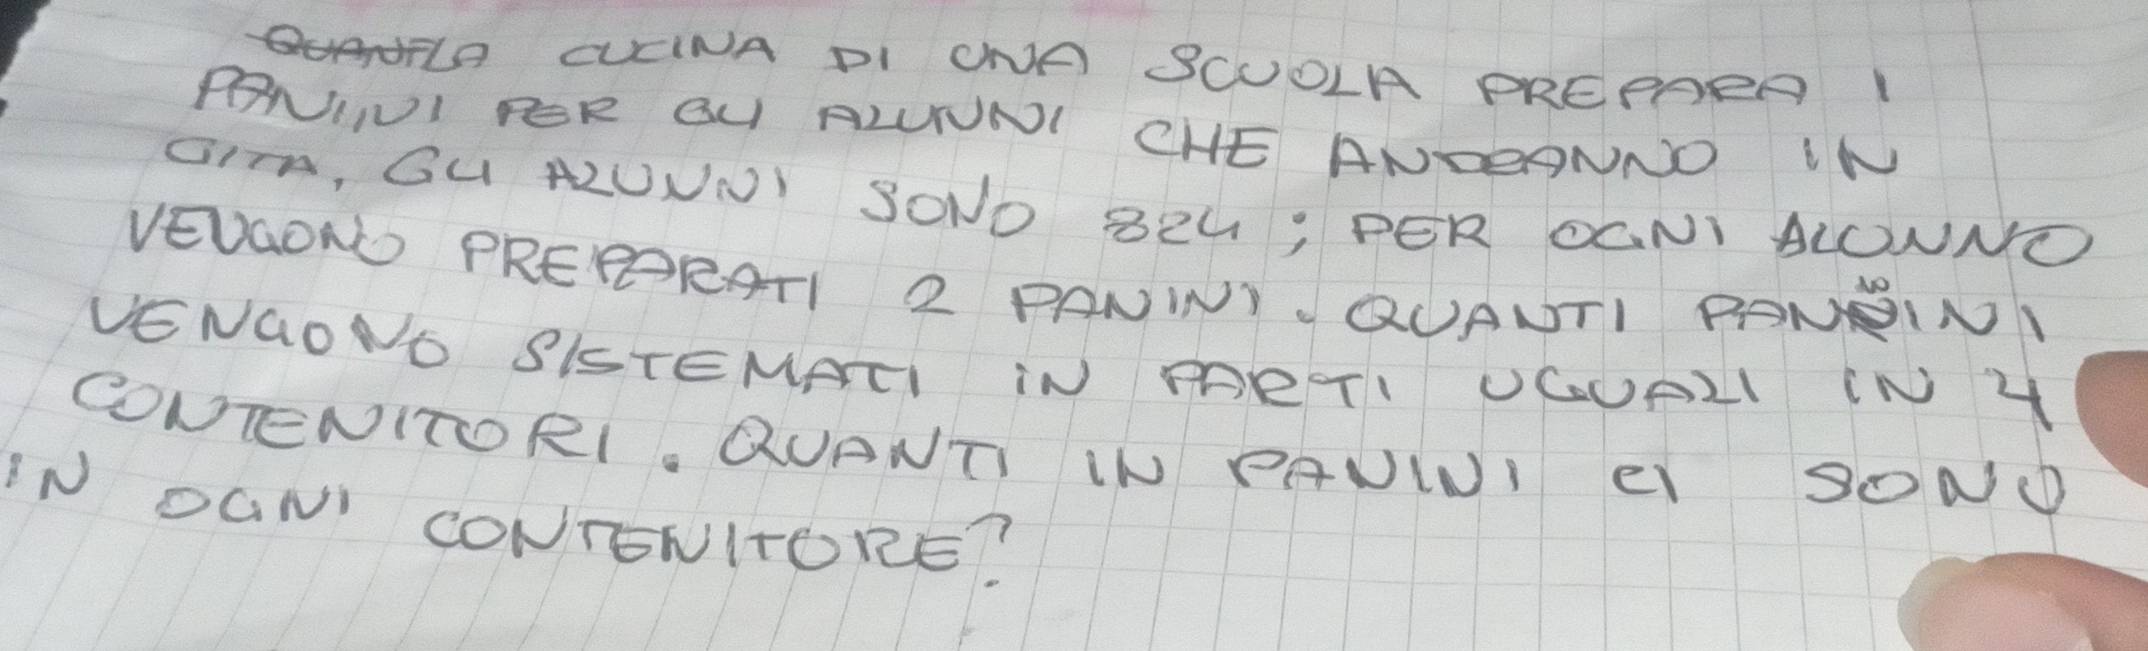 LA CUCINA DI UNA SCUOLA PREPARA I
PANINI PER GLI ALUNNI CHE ANDRANNO IN
GITA, GLI ALUNNI SONO 824; PER OGNI ALUNNO
VENGONO PREPARATI 2 PANINI. QUANTI PANINI
VENGONO SISTEMATI IN PARTI UGUALI IN 4
CONTENITORI. QUANTI IN PANINI CI SONO
IN OGNI CONTENITORE?